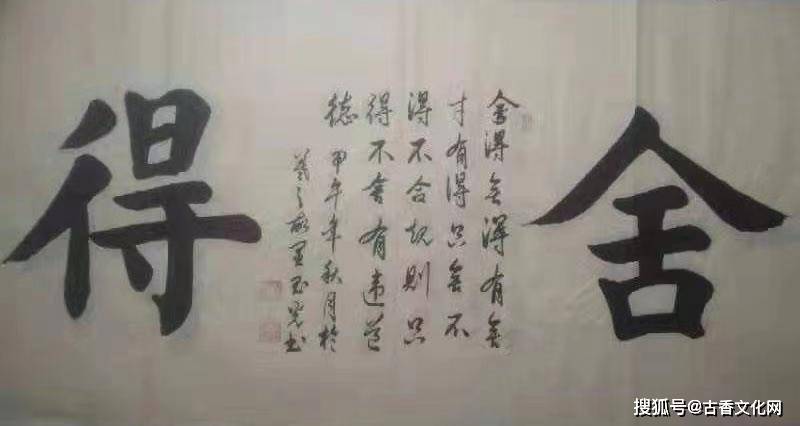 舍
舍得舍得有舍
才有得只舍不
得不合规则只
得不舍有违道
德 甲午年秋月於
书
得
搜狐号@古香文化网